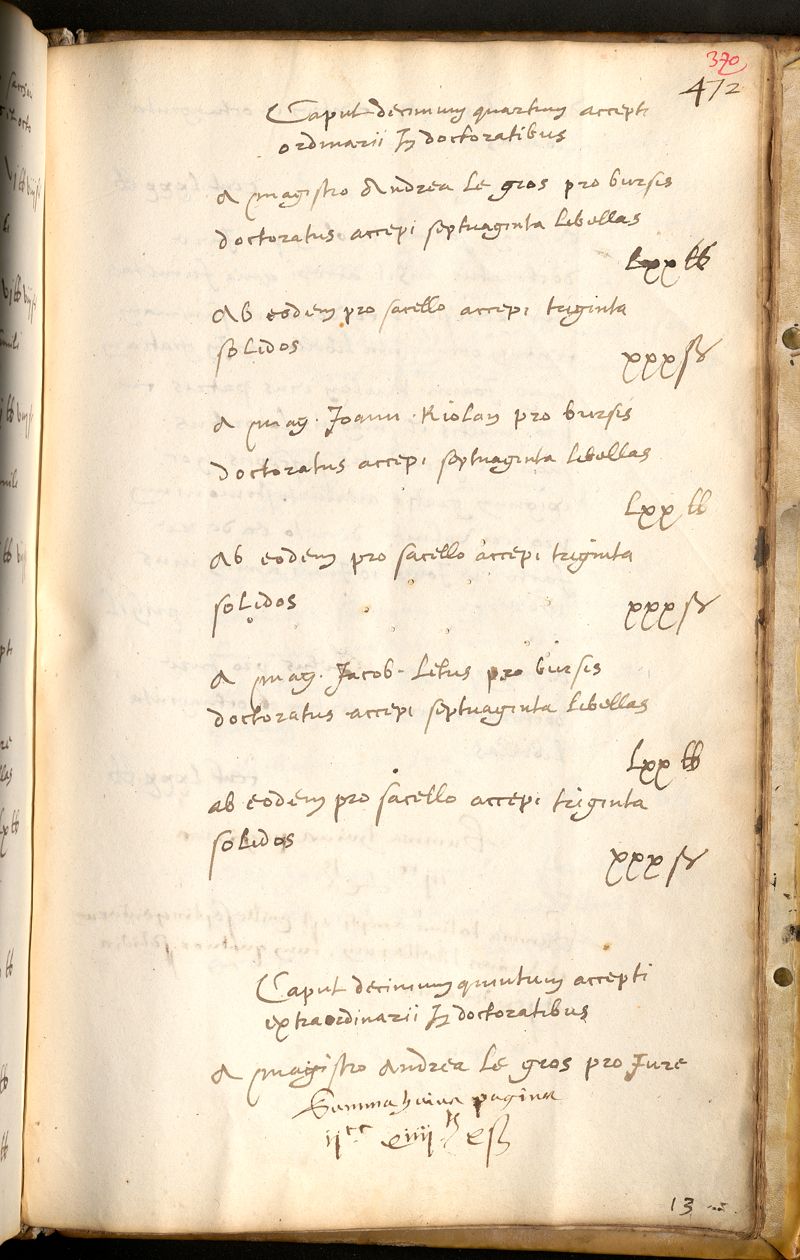 370
472
Caput decimum quartum accepti
ordinarii In doctoratibus
A magistro Andrea Le gros pro bursis
doctoratus accepi septuaginta Libellas
Lxx lb
Ab eodem pro sacello accepi triginta
soLidos
xxx s
A mag. Joann. Riolan pro bursis
doctoratus accepi septuaginta Libellas
Lxx lb
Ab eodem pro sacello accepi triginta
soLidos
xxx s
A mag. Jacob. Letus pro bursis
doctoratus accepi septuaginta Libellas
Lxx lb
ab eodem pro sacello accepi triginta
soLidos
xxx s
Caput decimum quintum accepti
extraordinarii In doctoratibus
A magistro Andrea Le gros pro Jure
Summa huius paginae
ijcc xiiij lb x s
13